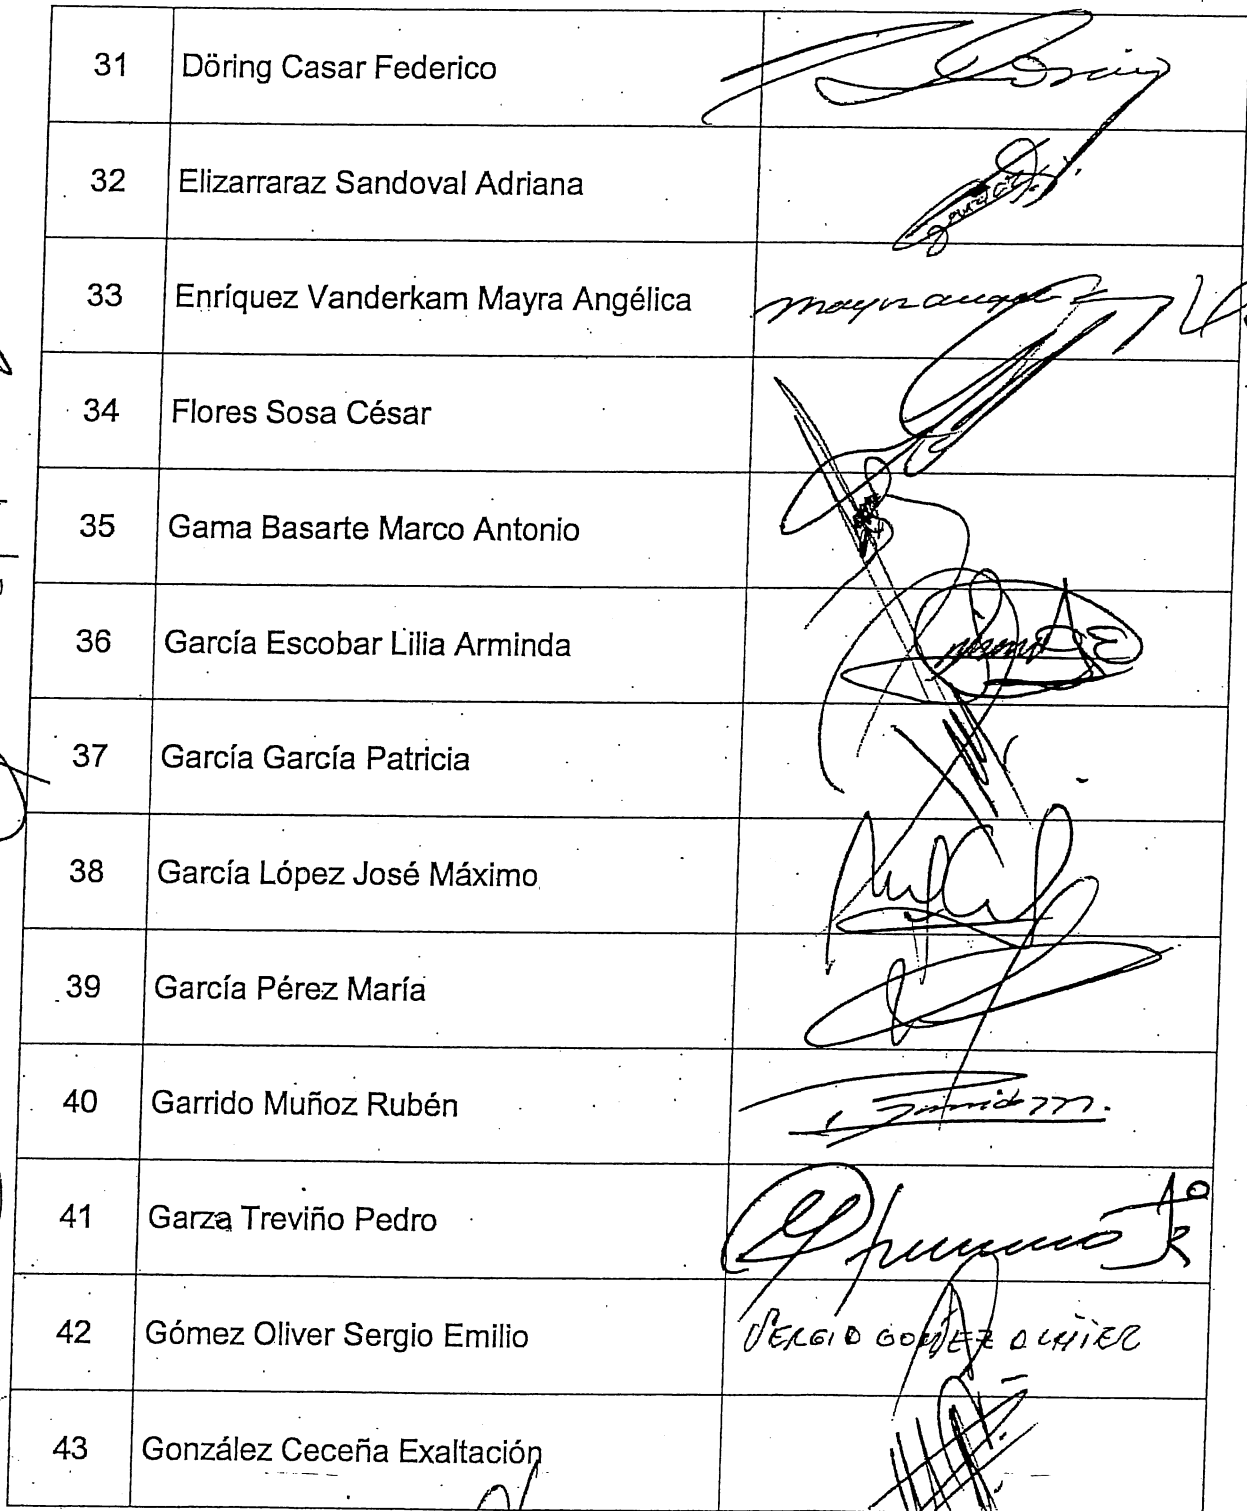 31 Döring Casar Federico
32 Elizarraraz Sandoval Adriana
33 Enríquez Vanderkam Mayra Angélica
34 Flores Sosa César
35 Gama Basarte Marco Antonio
36 García Escobar Lilia Arminda
37 García García Patricia
38 García López José Máximo
39 García Pérez María
40 Garrido Muñoz Rubén
41 Garza Treviño Pedro
42 Gómez Oliver Sergio Emilio SERGIO GOMEZ OLIVIER
43 González Ceceña Exaltación